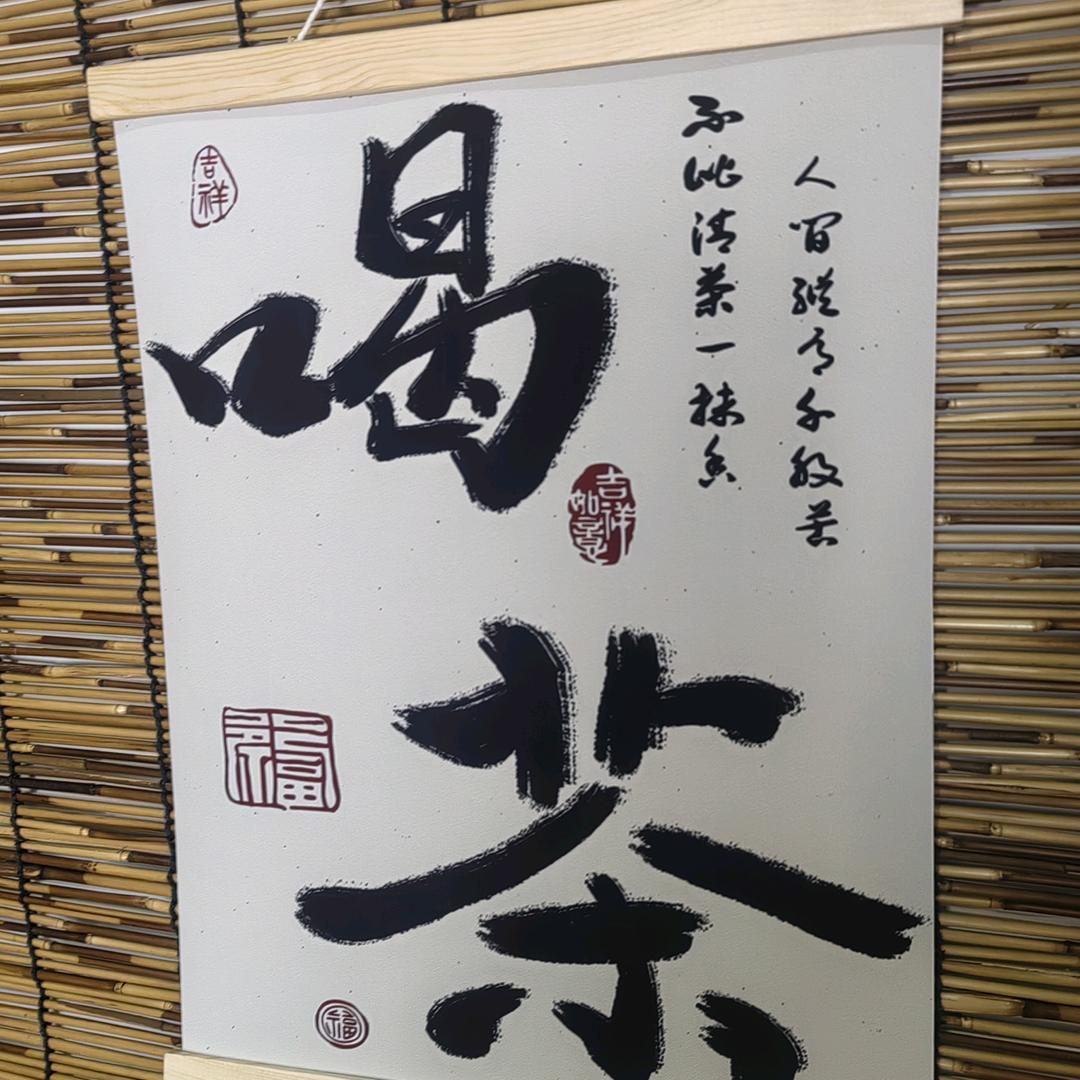 人間縱有千般苦
不此清茶一抹香
喝
茶
吉祥
吉祥
如意
福
福